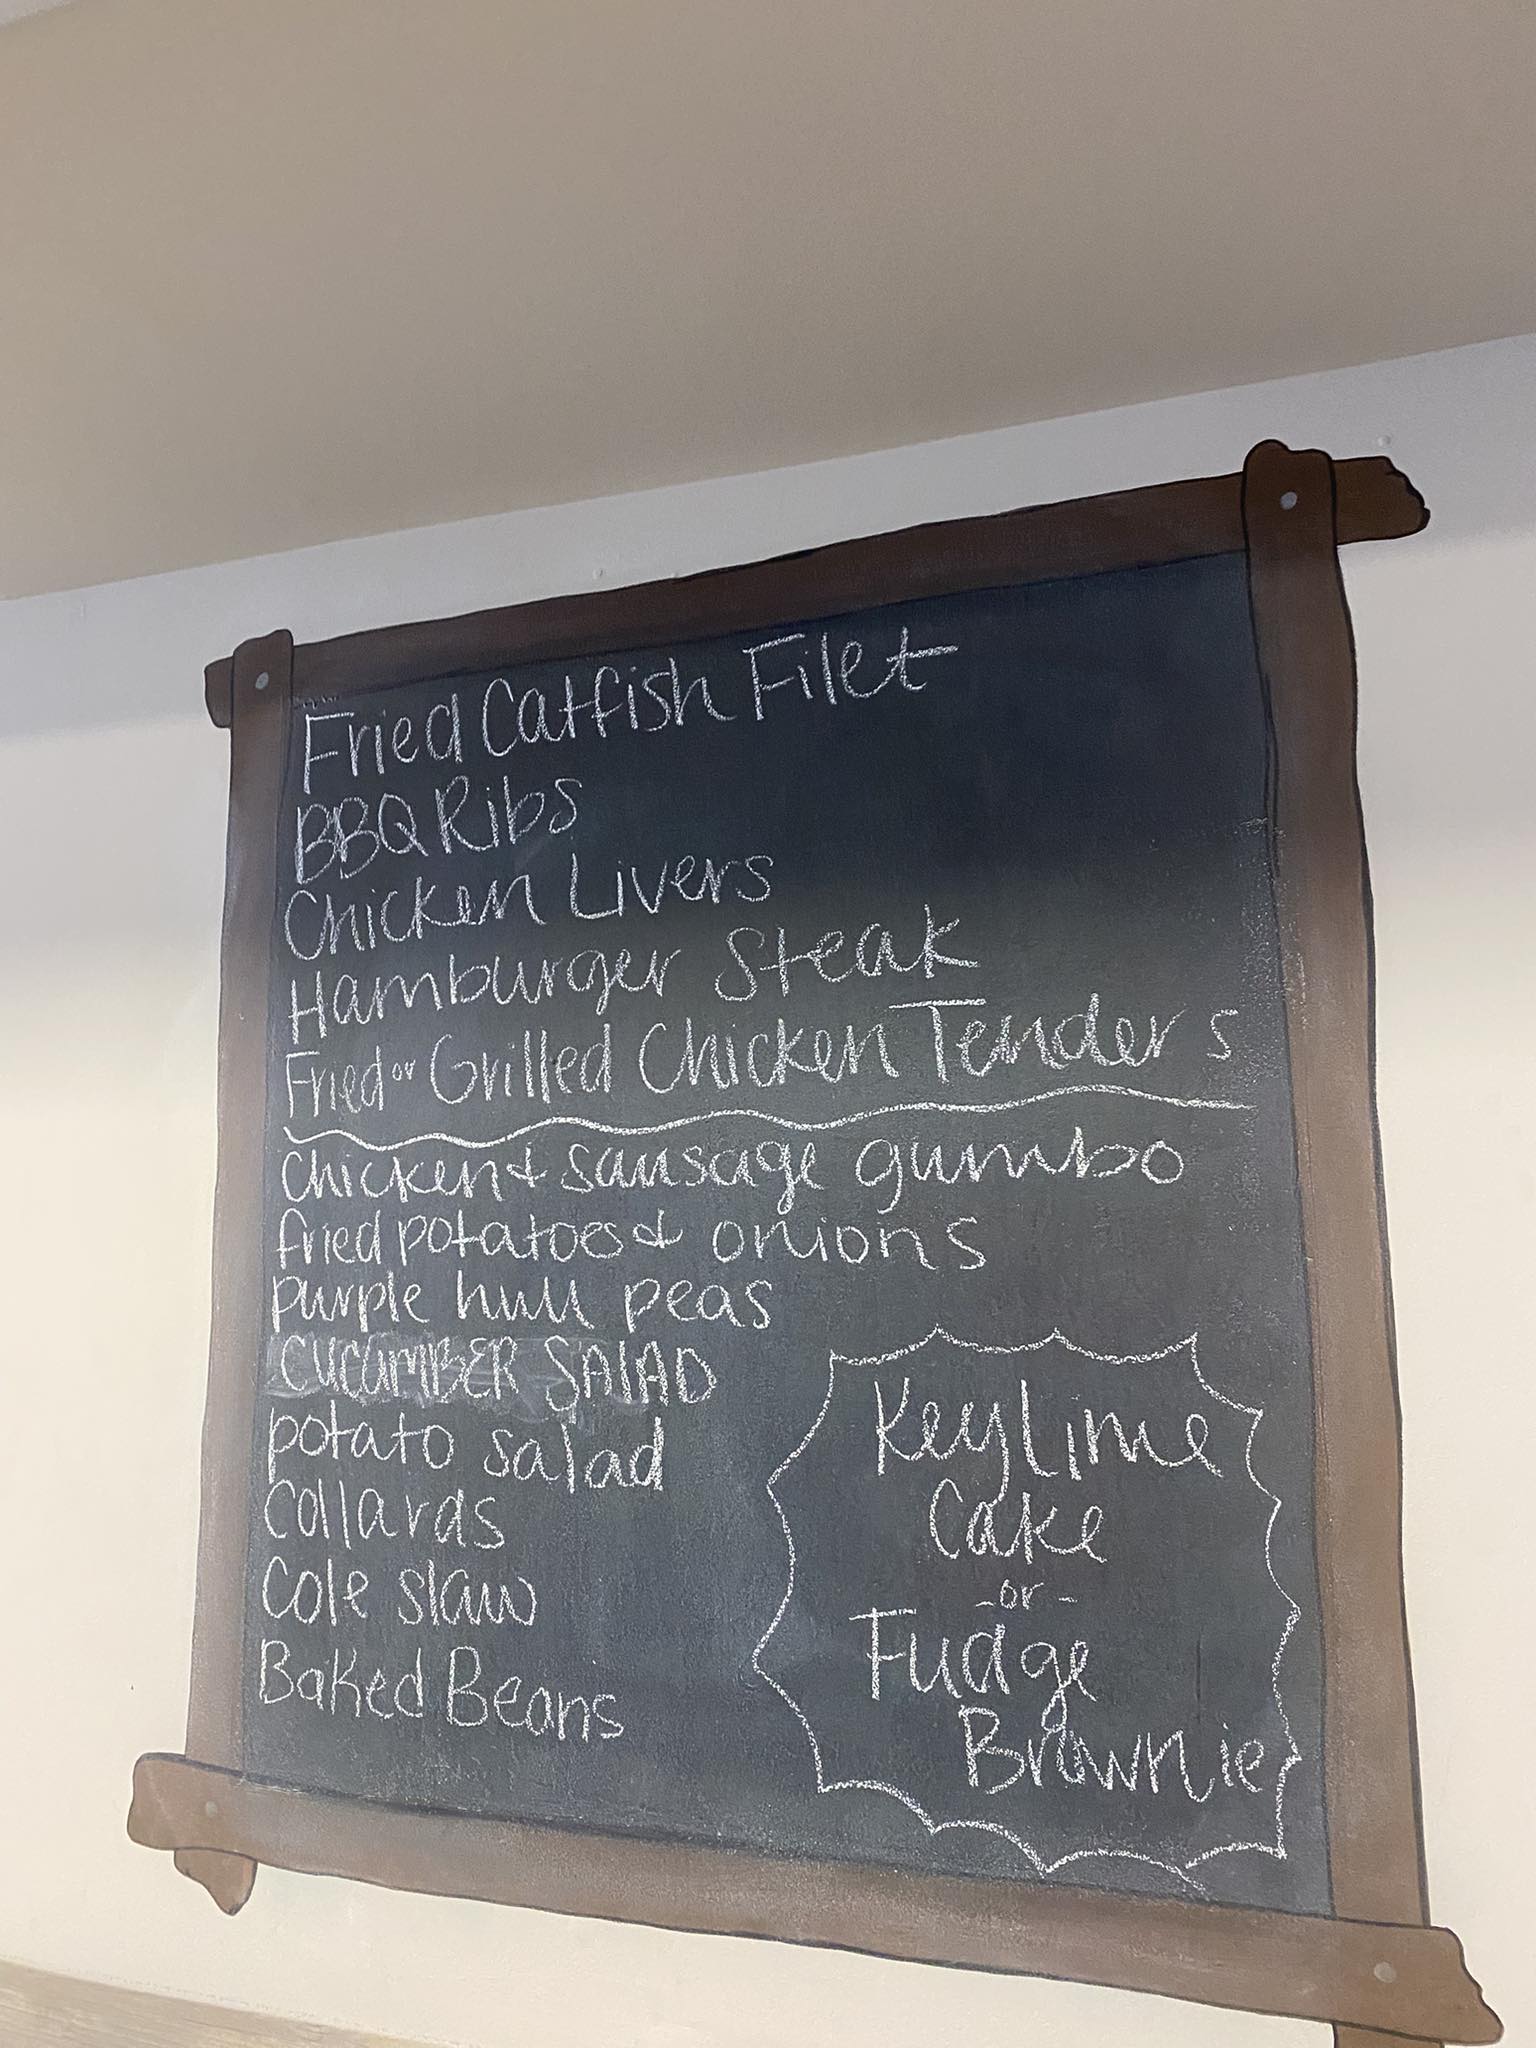 Fried Catfish Filet
BBQ Ribs
Chicken Livers
Hamburger Steak
Fried or Grilled Chicken Tenders
chicken & sausage gumbo
fried potatoes & onions
purple hull peas
CUCUMBER SALAD
potato salad
Collards
Cole slaw
Baked Beans
Key Lime
Cake
-or-
Fudge
Brownie